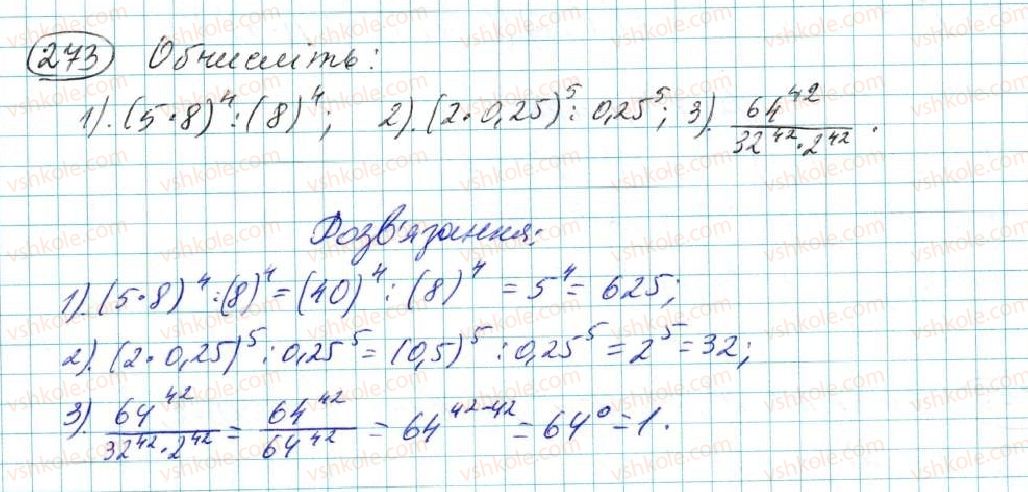 273 Обчисліть:
1). (5·8)⁴:(8)⁴; 2). (2·0,25)⁵: 0,25⁵; 3). 64⁴²/(32⁴²·2⁴²).
Розв'язання:
1). (5·8)⁴:(8)⁴=(40)⁴:(8)⁴ = 5⁴ = 625;
2). (2·0,25)⁵:0,25⁵ = (0,5)⁵:0,25⁵ = 2⁵ = 32;
3). 64⁴²/(32⁴²·2⁴²) = 64⁴²/64⁴² = 64⁴²⁻⁴² = 64⁰ = 1.